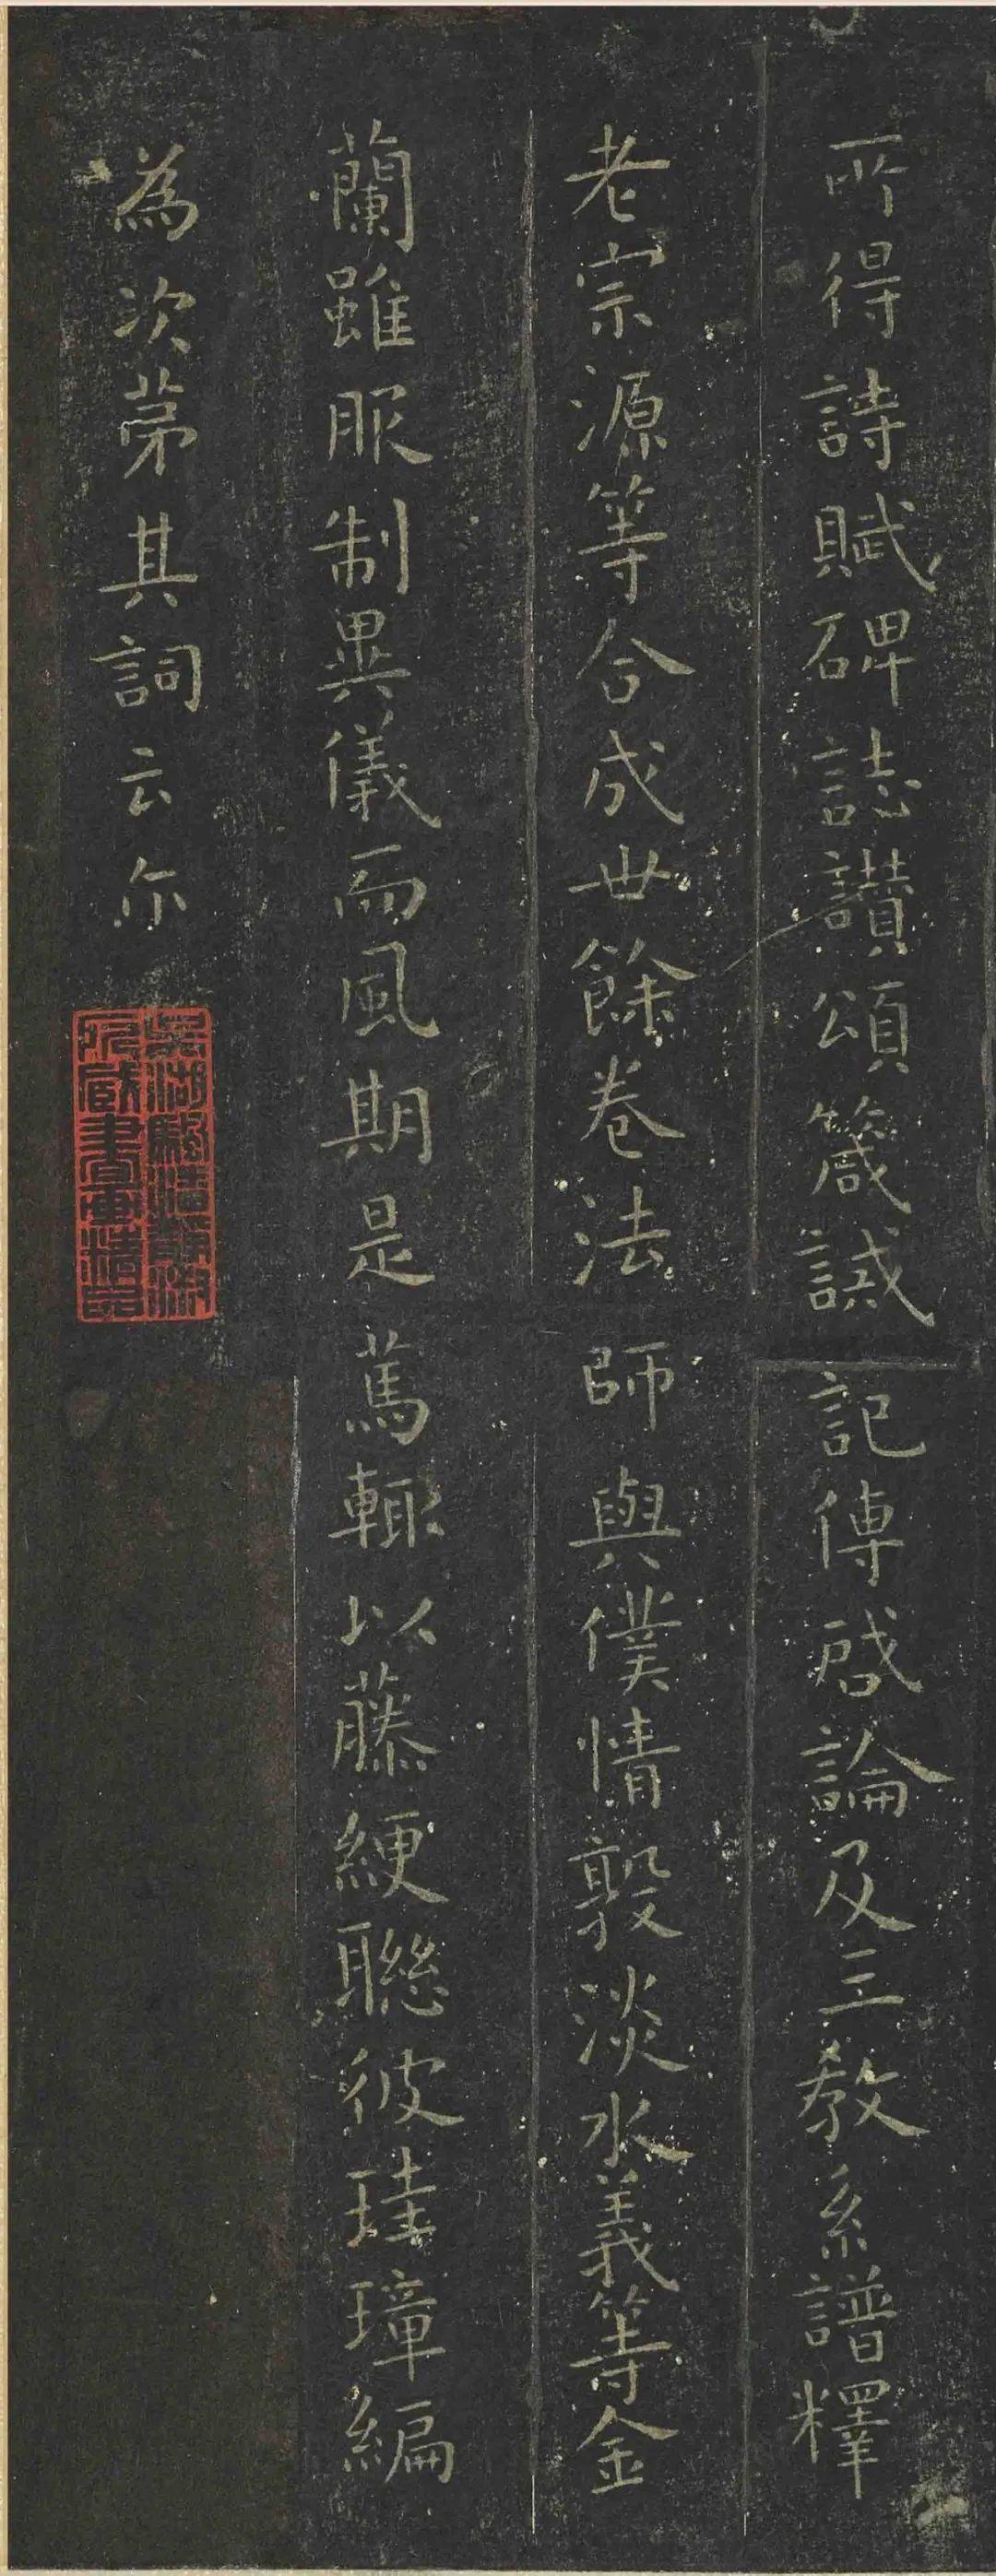 所得詩賦碑誌讚頌箴誡記傳啓論及三教系譜釋
老宗源等合成卅餘卷法師與僕情敦淡水義等金
蘭雖服制異儀而風期是篤輒以藤綆聯彼珪璋編
為次苐其詞云尒
吳湖驪潘靜淑
所藏書畫精品